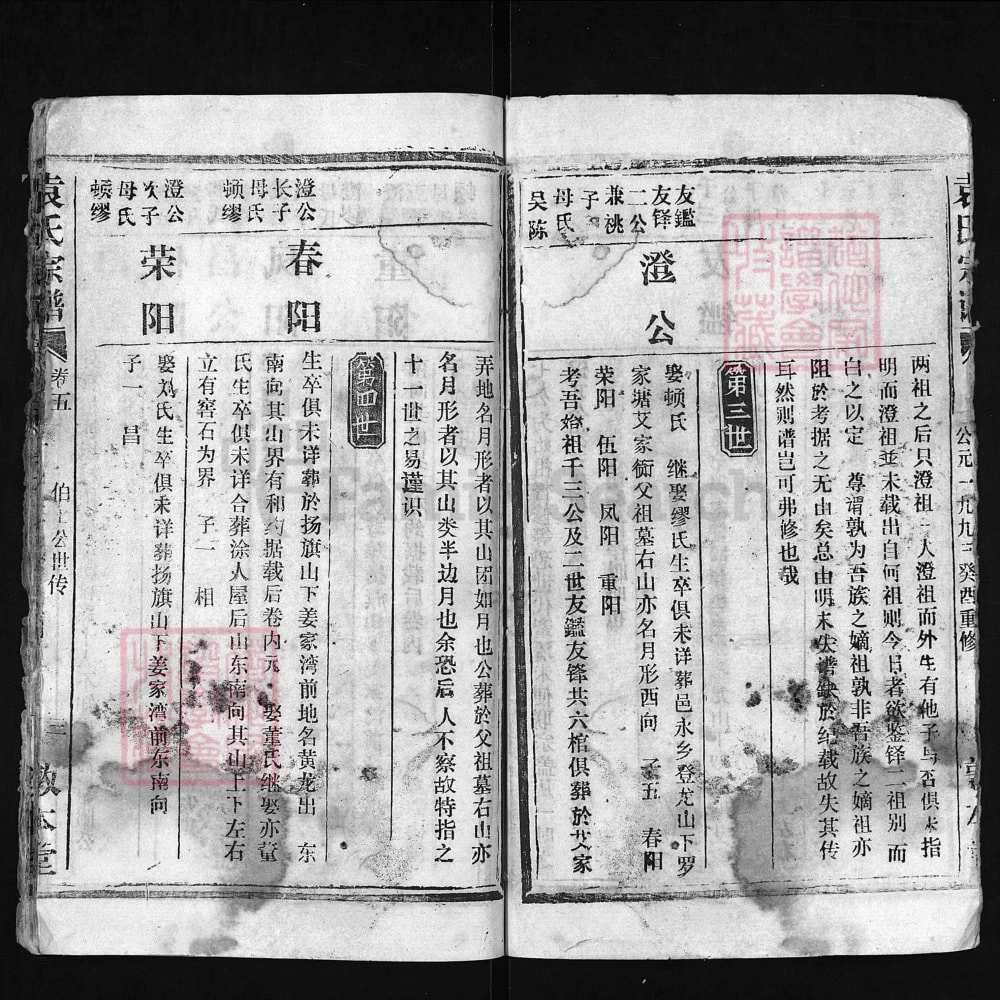 袁氏宗谱
公元一九九三癸酉重修
两祖之后只澄祖一人澄祖而外生有他子与否俱未指
明而澄祖並未载出自何祖则今日者欲鉴铎二祖别而
白之以定 尊谓孰为吾族之嫡祖孰非吾族之嫡祖亦
阻於考据之无由矣总由明末失谱缺於纪载故失其传
亘然则谱岂可弗修也哉
第三世
友鑑
友铎
二公
兼祧
子
母氏
吴陈
澄公
娶顿氏 继娶缪氏生卒俱未详葬邑永乡登龙山下罗
家塘艾家衕父祖墓右山亦名月形西向 子五 春阳
荣阳 伍阳 凤阳 重阳
考吾始祖千三公及二世友鑑友铎共六棺俱葬於艾家
弄地名月形者以其山团如月也公葬於父祖墓右山亦
名月形者以其山类半边月也余恐后人不察故特指之
十一世之易谨识
第四世
澄公
长子
母氏
顿缪
春阳
生卒俱未详葬於扬旗山下姜家湾前地名黄龙出 东
南向其山界有和约据载后卷内元 娶董氏继娶亦董
氏生卒俱未详合葬涂人屋后山东南向其山上下左右
立有窖石为界 子一 相
澄公
次子
母氏
顿缪
荣阳
娶刘氏生卒俱未详葬扬旗山下姜家湾前东南向
子一 昌
袁氏宗谱
卷五
公世传
三
敦本堂
FamilySearch